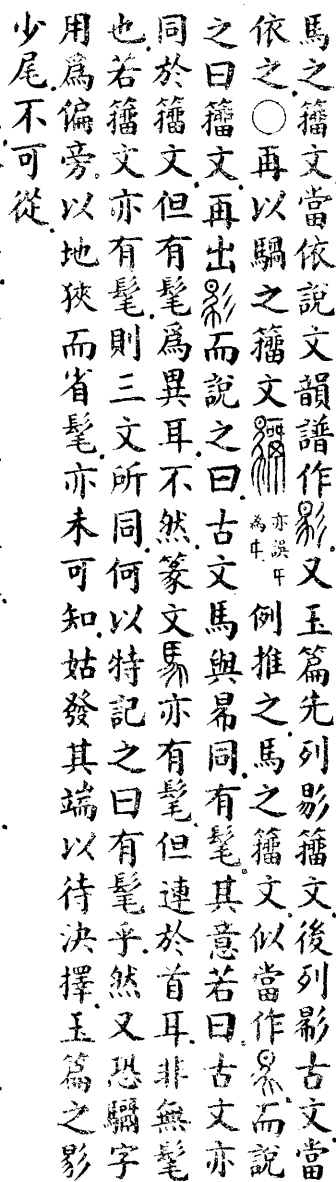 馬之籀文當依說文韻譜作又玉篇先列籀文後列古文當
依之○再以騧之籀文亦誤為例推之馬之籀文似當作而說
之曰籀文再出而說之曰古文馬與同有髦其意若曰古文亦
同於籀文但有髦爲異耳不然篆文亦有髦但連於首耳非無髦
也若籀文亦有髦則三文所同何以特記之曰有髦乎然又恐騧字
用爲偏旁以地狹而省髦亦未可知姑發其端以待決擇玉篇之
少尾不可從